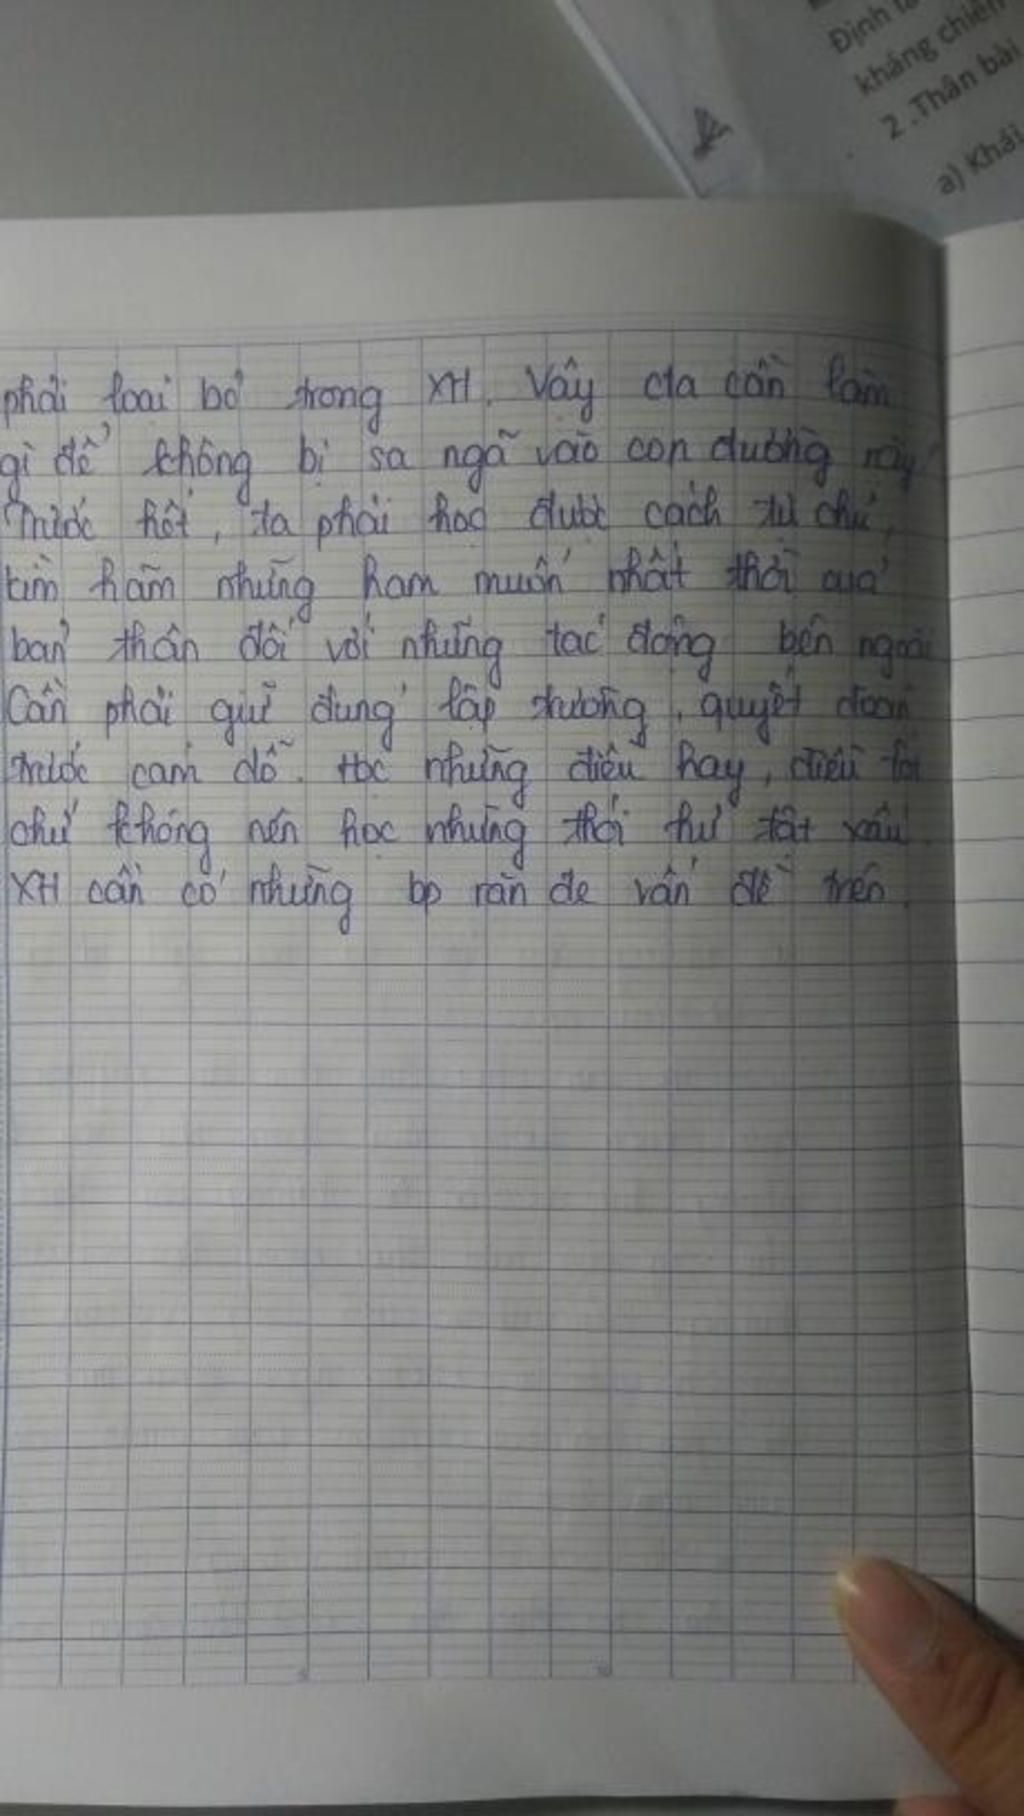 Định
kháng chiến
2.Thân bài
a) Khái
phải loại bỏ trong XH. Vậy cta cần làm
gì để không bị sa ngã vào con đường này
Trước hết, ta phải học được cách tự chủ,
kìm hãm những ham muốn nhất thời của
bản thân đối với những tác động bên ngoài
Cần phải giữ đúng lập trường, quyết đoán
trước cám dỗ. Học những điều hay, điều tốt
chứ không nên học những thói hư tật xấu.
XH cần có những bp răn đe vấn đề trên.